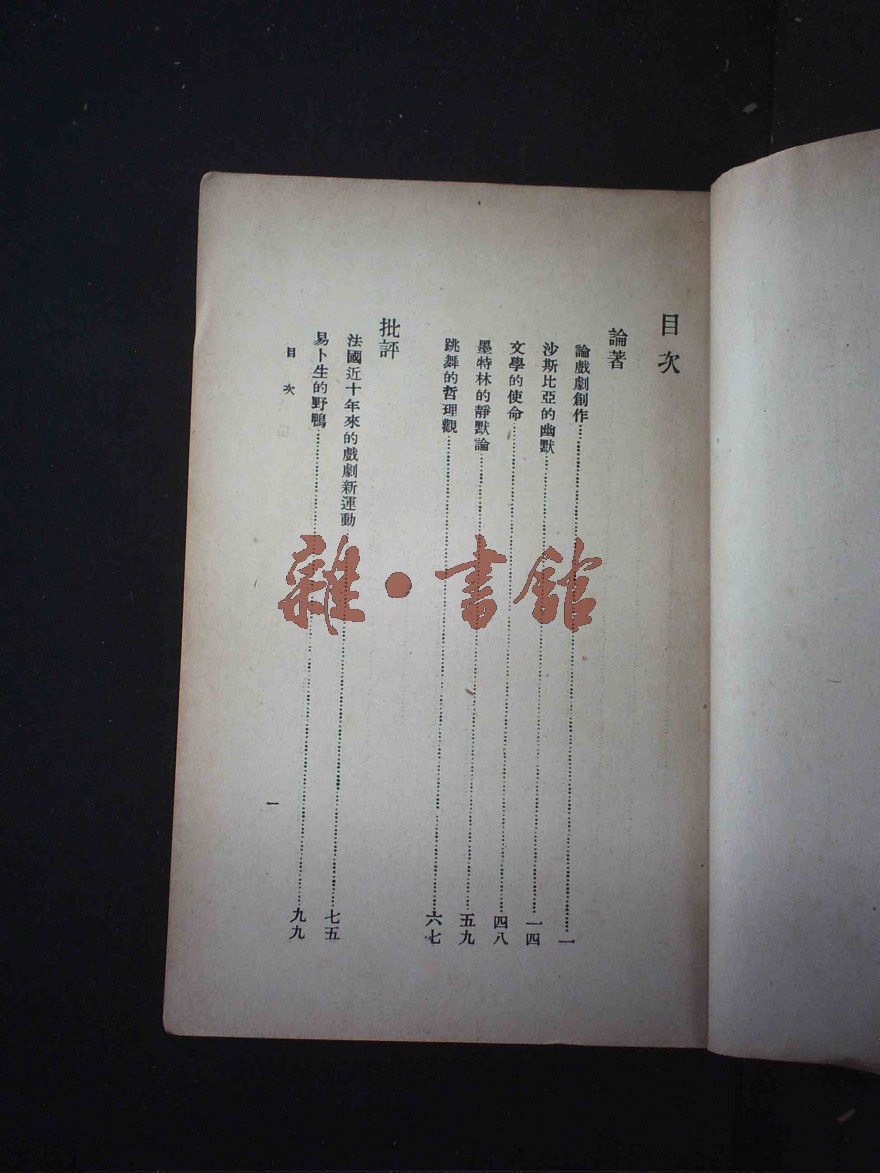 目次
論著
論戲劇創作……一
沙斯比亞的幽默……一四
文學的使命……四八
墨特林的靜默論……五九
跳舞的哲理觀……六七
批評
法國近十年來的戲劇新運動……七五
易卜生的野鴨……九九
目次
一
雜·書館